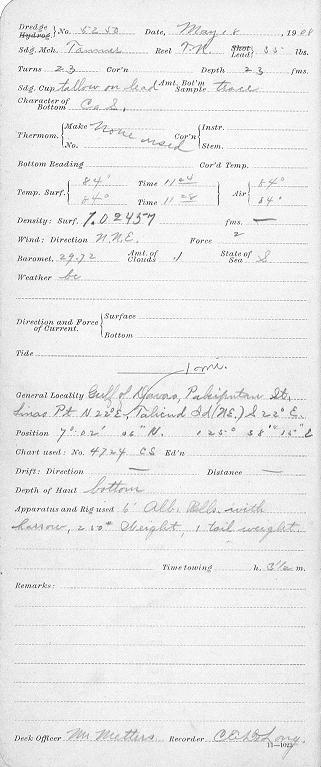 Dredge
Hydrog. } No. 5250 Date, May 18, 1908
Sdg. Mch. Tanner Reel T.N. Shot Lead 35 lbs.
Turns 23 Cor'n Depth 23 fms.
Sdg. Cup tallow on lead Amt. Bot'm Sample trace
Character of Bottom Co. S.
Thermom. { Make None used Cor'n { Instr.
No. Stem.
Bottom Reading Cor'd Temp.
Temp. Surf. { 84° Time 11 04 } Air { 84°
84° Time 11 28 84°
Density: Surf. 1.02457 fms. —
Wind: Direction N.N.E. Force 2
Baromet. 29.72 Amt. of Clouds .1 State of Sea S
Weather bc
Direction and Force of Current. { Surface
Bottom
Tide
General Locality Gulf of Davao, Pakiputan St.
Linas Pt. N 22° E, Talicud Id (N.E.) S 22° E.
Position 7° 02' 06" N. 125° 38' 15" E
Chart used: No. 4724 CS Ed'n
Drift: Direction — Distance —
Depth of Haul bottom
Apparatus and Rig used 6' Alb. Blls. with
harrow, 250# weight, 1 tail weight.
Time towing h. 3½ m.
Remarks:
Deck Officer Mr. Recorder
11—1023